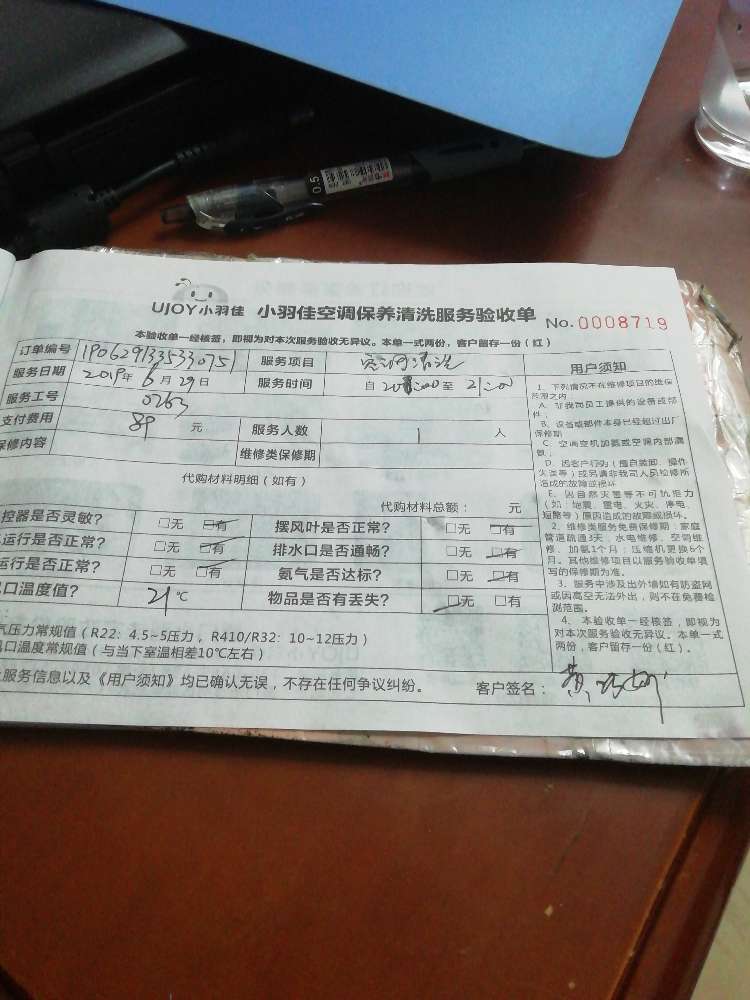 0.5
UJOY小羽佳 小羽佳空调保养清洗服务验收单 No.0008719
本验收单一经核签，即视为对本次服务验收无异议。本单一式两份，客户留存一份（红）
订单编号 1P06291335330751 服务项目 空调清洗
服务日期 2019年6月29日 服务时间 自20:00至21:00
服务工号 0263
支付费用 89 元 服务人数 1 人
保修内容 维修类保修期
代购材料明细（如有）
代购材料总额： 元
控器是否灵敏？ □无 □有 摆风叶是否正常？ □无 □有
运行是否正常？ □无 □有 排水口是否通畅？ □无 □有
运行是否正常？ □无 □有 氨气是否达标？ □无 □有
口温度值？ 21℃ 物品是否有丢失？ □无 □有
气压力常规值（R22：4.5~5压力，R410/R32：10~12压力）
口温度常规值（与当下室温相差10℃左右）
服务信息以及《用户须知》均已确认无误，不存在任何争议纠纷。 客户签名：黄
用户须知
1、下列情况不在维修项目的维保
范围之内
A、非我司员工提供的设备或部
件；
B、设备或部件本身已经超过出厂
保修期
C、空调空机加氨或空调内部漏
氨；
D、因客户行为（擅自装卸、操作
失误等）或另请非我司人员检修所
造成的故障或损坏
E、因自然灾害等不可抗拒力
（如：地震、雷电、火灾、停电、
短路等）原因造成的故障或损坏。
2、维修类服务免费保修期：家庭
管道疏通3天、水电维修、空调维
修、加氨1个月；压缩机更换6个
月。其他维修项目以服务验收单填
写的保修期为准。
3、服务中涉及出外墙如有防盗网
或因高空无法外出，则不在免费检
测范围。
4、本验收单一经核签，即视为
对本次服务验收无异议。本单一式
两份，客户留存一份（红）。